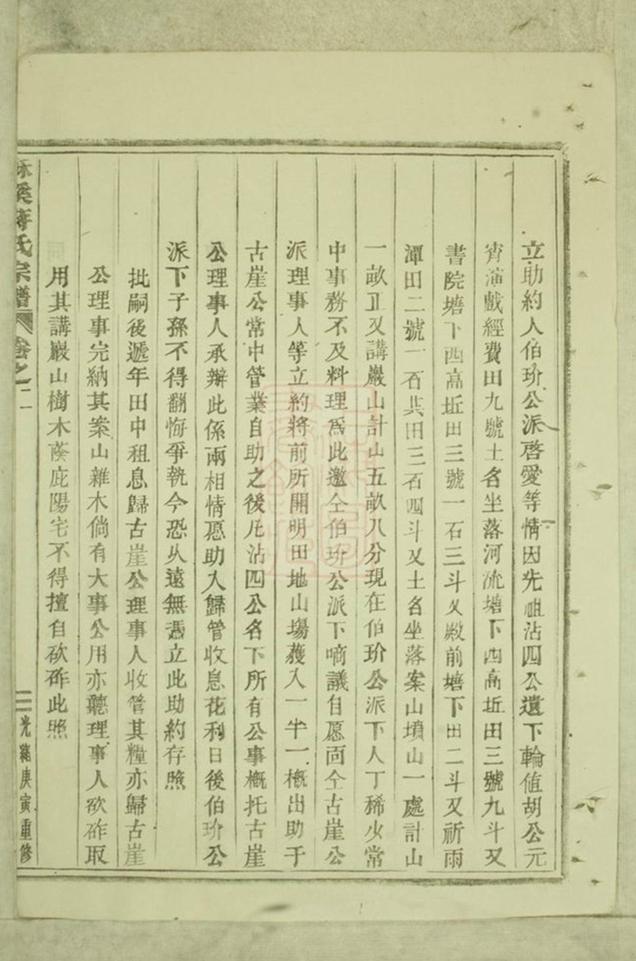 立助約人伯玠公派啓愛等情因先祖沾四公遺下輪值胡公元
宵演戲經費田九號土名坐落河流塘下四高坵田三號九斗又
書院塘下四高坵田三號一石三斗又殿前塘下田二斗又祈雨
潭田二號一石共田三石四斗又土名坐落案山墳山一處計山
一畝正又講巖山計山五畝八分現在伯玠公派下人丁稀少常
中事務不及料理爲此邀仝伯玠公派下嘀議自愿向仝古崖公
派理事人等立約將前所開明田地山塲蕿入一半一概出助于
古崖公常中管業自助之後凡沾四公名下所有公事概托古崖
公理事人承辦此係兩相情愿助入歸管收息花利日後伯玠公
派下子孫不得翻悔爭執今恐久遠無憑立此助約存照
批嗣後遞年田中租息歸古崖公理事人收管其糧亦歸古崖
公理事完納其案山雜木倘有大事公用亦聽理事人砍斫取
用其講巖山樹木蔭庇陽宅不得擅自砍斫此照
溪蔣氏宗譜 卷之二
光緒庚寅重修